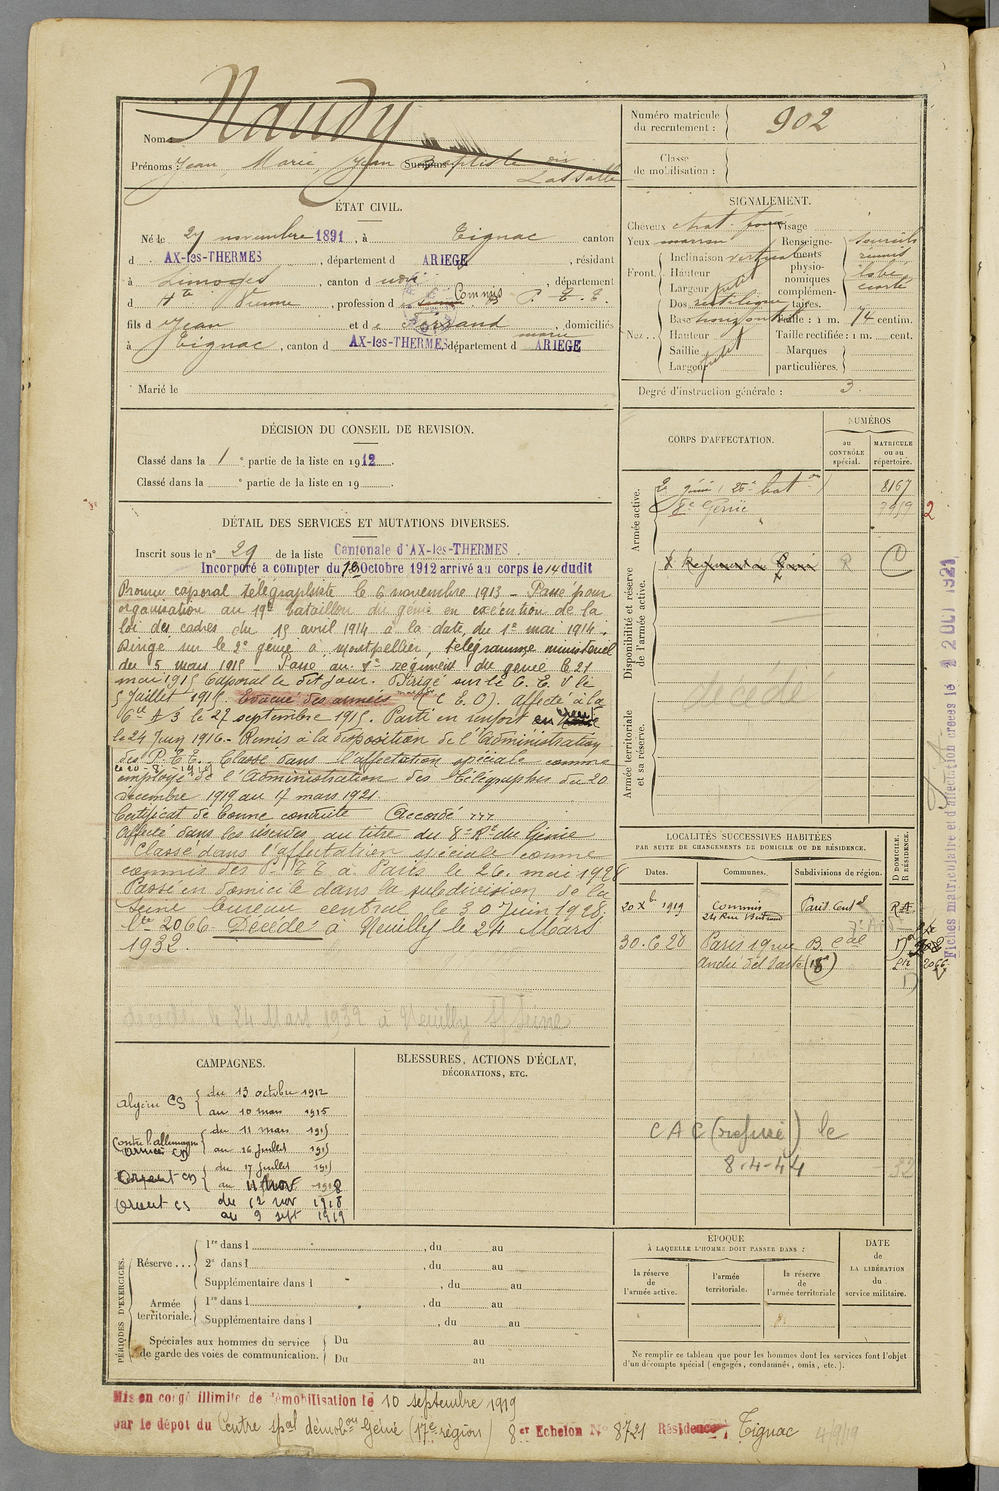 Nom : Naudy
Prénoms : Jean Marie, Jean Baptiste dit Lassalle
Surnoms
Numéro matricule du recrutement : 902
Classe de mobilisation :
ÉTAT CIVIL.
Né le 27 novembre 1891, à Tignac canton
d AX-les-THERMES, département d ARIEGE, résidant
à Limoges, canton d udit, département
d Hte Vienne, profession d Commis P. T. T.
fils d Jean et d e domiciliés
à Tignac, canton d AX-les-THERMES, département d ARIEGE
Marié le
SIGNALEMENT.
Cheveux chat. foncé Visage
Yeux marron
Front. Inclinaison verticale
Hauteur
Largeur petit
Nez. Dos rectiligne
Base horizontale
Hauteur
Saillie
Largeur petit
Renseignements physionomiques complémentaires.
sourcils
réunis
lobe
écarté
Taille : 1 m. 74 centim.
Taille rectifiée : 1 m. cent.
Marques particulières.
Degré d'instruction générale : 3
DÉCISION DU CONSEIL DE REVISION.
Classé dans la 1e partie de la liste en 1912.
Classé dans la e partie de la liste en 19
CORPS D'AFFECTATION.
NUMÉROS
au CONTRÔLE spécial.
MATRICULE ou au répertoire.
Armée active.
2e génie (26e baton) 8167
8e Génie 7959 2
Disponibilité et réserve de l'armée active.
Régiment de Génie R
décédé
Armée territoriale et sa réserve.
DÉTAIL DES SERVICES ET MUTATIONS DIVERSES.
Inscrit sous le n° 29 de la liste Cantonale d'AX-les-THERMES.
Incorporé à compter du 10 Octobre 1912 arrivé au corps le 14 dudit
Promu caporal télégraphiste le 6 novembre 1913 – Passé pour
organisation au 19e bataillon du génie en exécution de la
loi des cadres du 15 avril 1914 à la date du 1er mai 1914.
Dirigé sur le 2e génie à Montpellier, télégramme ministériel
du 5 mars 1915 – Passé au 8e régiment du génie le 21
mai 1915 Caporal le dit jour. Dirigé sur le C. E. O le
5 Juillet 1915. Evacué des armées (C E O). Affecté à la
Cie A 3 le 25 septembre 1915. Parti en renfort en Orient
le 24 Juin 1916 – Remis à la disposition de l'Administration
des P. T. T. – Classé dans l'affectation spéciale comme
employé de l'Administration des télégraphes du 20
décembre 1919 au 17 mars 1921.
Certificat de bonne conduite Accordé
Affecté dans les réserves au titre du 8e Rt du Génie
Classé dans l'affectation spéciale comme
commis des P. T T à Paris le 26. mai 1928
Passé en domicile dans la subdivision de la
Seine bureau central le 30 Juin 1928
No 2066 Décédé à Neuilly le 24 Mars
1932.
décédé le 24 Mars 1932 à Neuilly S/Seine
LOCALITÉS SUCCESSIVES HABITÉES
PAR SUITE DE CHANGEMENTS DE DOMICILE OU DE RÉSIDENCE.
Dates.
Communes.
Subdivisions de région.
D DOMICILE. R RÉSIDENCE.
20 Xb 1919 commis Paris Central R A
30.6 28 Paris 19 rue B. Cal D
André del Sarte (18e) 2066
CAC (refusé) le
8-4-44 – 32
Fiches matriculaire et d'affectation créées le 22 OCT 1921
CAMPAGNES.
Algérie CS du 13 octobre 1912
au 10 mars 1915
Contre l'Allemagne armée CD du 11 mars 1915
au 16 Juillet 1915
Orient CD du 17 Juillet 1915
au 11 nov 1918
Orient CS du 12 nov 1918
au 9 sept 1919
BLESSURES, ACTIONS D'ÉCLAT,
DÉCORATIONS, ETC.
PÉRIODES D'EXERCICES.
Réserve... 1re dans l, du au
2e dans l, du au
Supplémentaire dans l, du au
Armée territoriale. 1re dans l, du au
Supplémentaire dans l, du au
Spéciales aux hommes du service de garde des voies de communication. Du au
Du au
ÉPOQUE
À LAQUELLE L'HOMME DOIT PASSER DANS :
la réserve de l'armée active.
l'armée territoriale.
la réserve de l'armée territoriale
DATE
de
LA LIBÉRATION
du
service militaire.
Ne remplir ce tableau que pour les hommes dont les services font l'objet
d'un décompte spécial (engagés, condamnés, omis, etc.).
Mis en congé illimité de démobilisation le 10 septembre 1919
par le dépôt du Centre spal démobon Génie (17e région) 8 er Echelon N° 8721 Résidence, Tignac 4/9/19